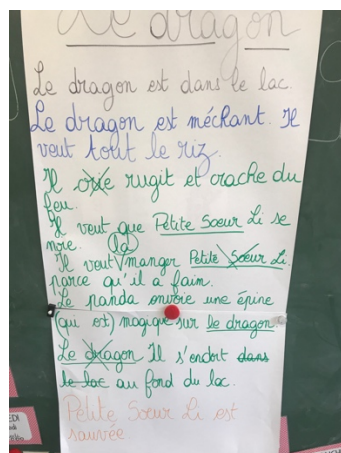 Le dragon
Le dragon est dans le lac.
Le dragon est méchant. Il
veut tout le riz.
Il crie rugit et crache du
feu.
Il veut que Petite Soeur Li se
noie. la
Il veut manger Petite Soeur Li.
parce qu'il a faim.
Le panda envoie une épine
(qui est) magique sur le dragon.
Le dragon Il s'endort dans
le lac au fond du lac.
Petite Soeur Li est
sauvée
EDI